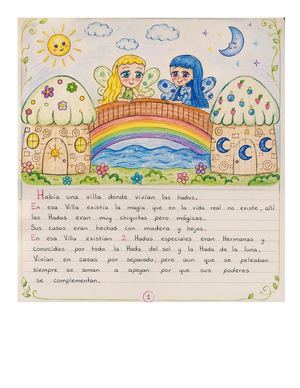 Había una villa donde vivían las hadas.
En esa Villa existía la magia que en la vida real no existe, allí
las Hadas eran muy chiquitas pero mágicas.
Sus casas eran hechas con madera y hojas.
En esa Villa existían 2 Hadas especiales eran Hermanas y
conocidas por todo la Hada del sol y la Hada de la luna.
Vivían en casas por separado, pero aun que se peleaban
siempre se aman a apoyan por que sus poderes
se complementan.
1